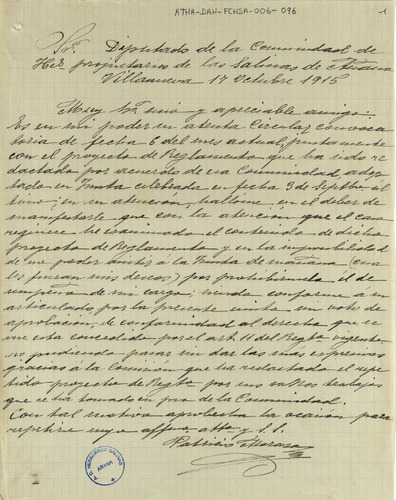 ATHA-DAH-FCHSA-006-096
1
Sr. Diputado de la Comunidad de
Hers. propietarios de las Salinas de Añana
Villanueva 17 Octubre 1915
Muy Sr. mio y apreciable amigo:
Es en mi poder su atenta Circular convoca
toria de fecha 6 del mes actual, juntamente
con el proyecto de Reglamento que ha sido re
dactado por acuerdo de esa Comunidad adop
tado en Junta celebrada en fecha 3 de Septbre úl
timo; en su atencion, hállome en el deber de
manifestarle que con la atencion que el caso
requiere he examinado el contenido de dicho
proyecto de Reglamento y en la imposibilidad
de me poder asistir á la Junta de mañana (cua
les fueran mis deseos) por prohibirmelo el de
sempeño de mi cargo; siendo conforme á su
articulado, por la presente emito un voto de
aprobacion, de conformidad al derecho que se
me esta concedido por el art. 11 del Regto. vigente
no pudiendo pasar sin dar las mas expresivas
gracias á la Comision que ha redactado el repe
tido proyecto de Regto. por sus trabajos
que se ha tomado en pro de la Comunidad.
Con tal motivo aprovecha la ocasion para
repetirse suyo affmo. atto. y s.s.
Patricio Moraza
A.C. HEREDEROS SALINAS
AÑANA